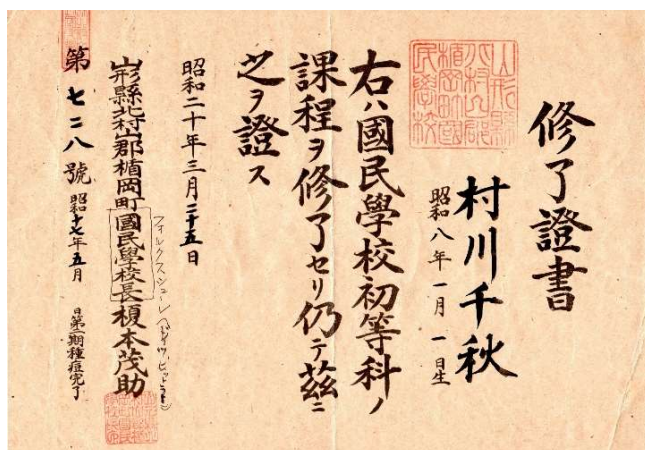 修了證書
村川千秋
昭和八年一月一日生
山形縣北村山郡楯岡町國民學校
右ハ國民學校初等科ノ
課程ヲ修了セリ仍テ茲ニ
之ヲ證ス
昭和二十年三月二十五日
山形縣北村山郡楯岡町國民學校長榎本茂助
フォルクスシューレ
第七二八號
昭和十七年五月 日第二期種痘完了